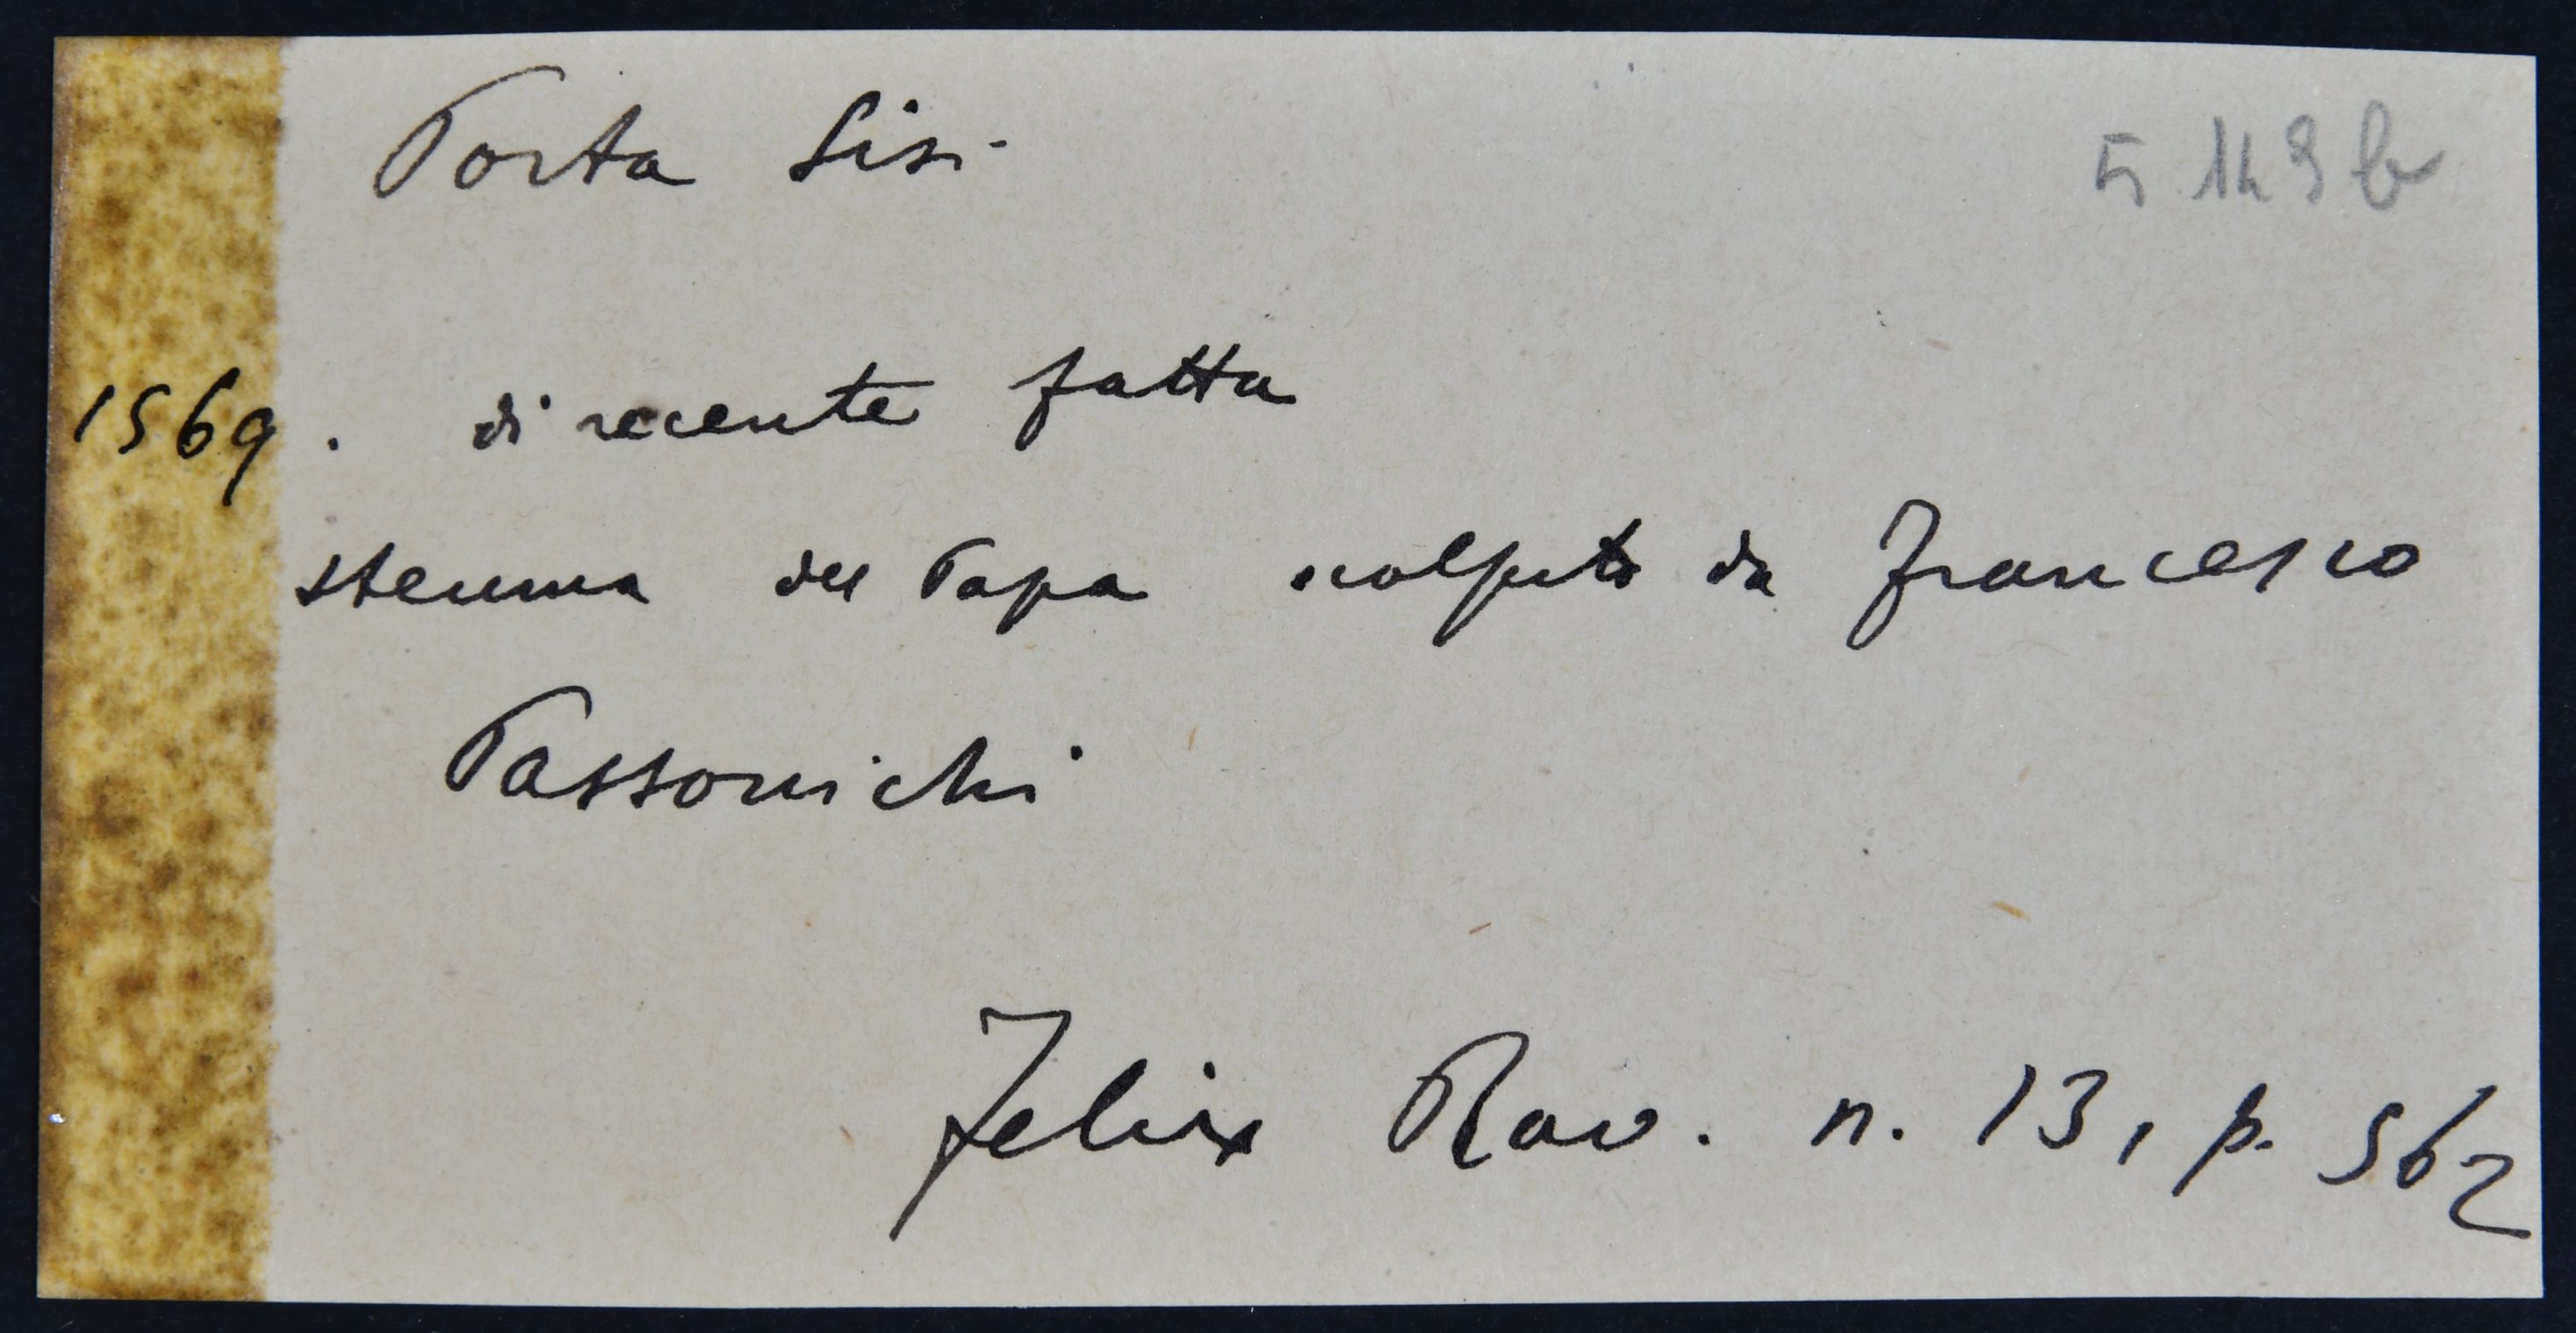 Porta Sisi
5 149 b
1569. di recente fatta
stemma del Papa scolpito da Francesco
Passonichi
Felix Rav. n. 13, p. 562